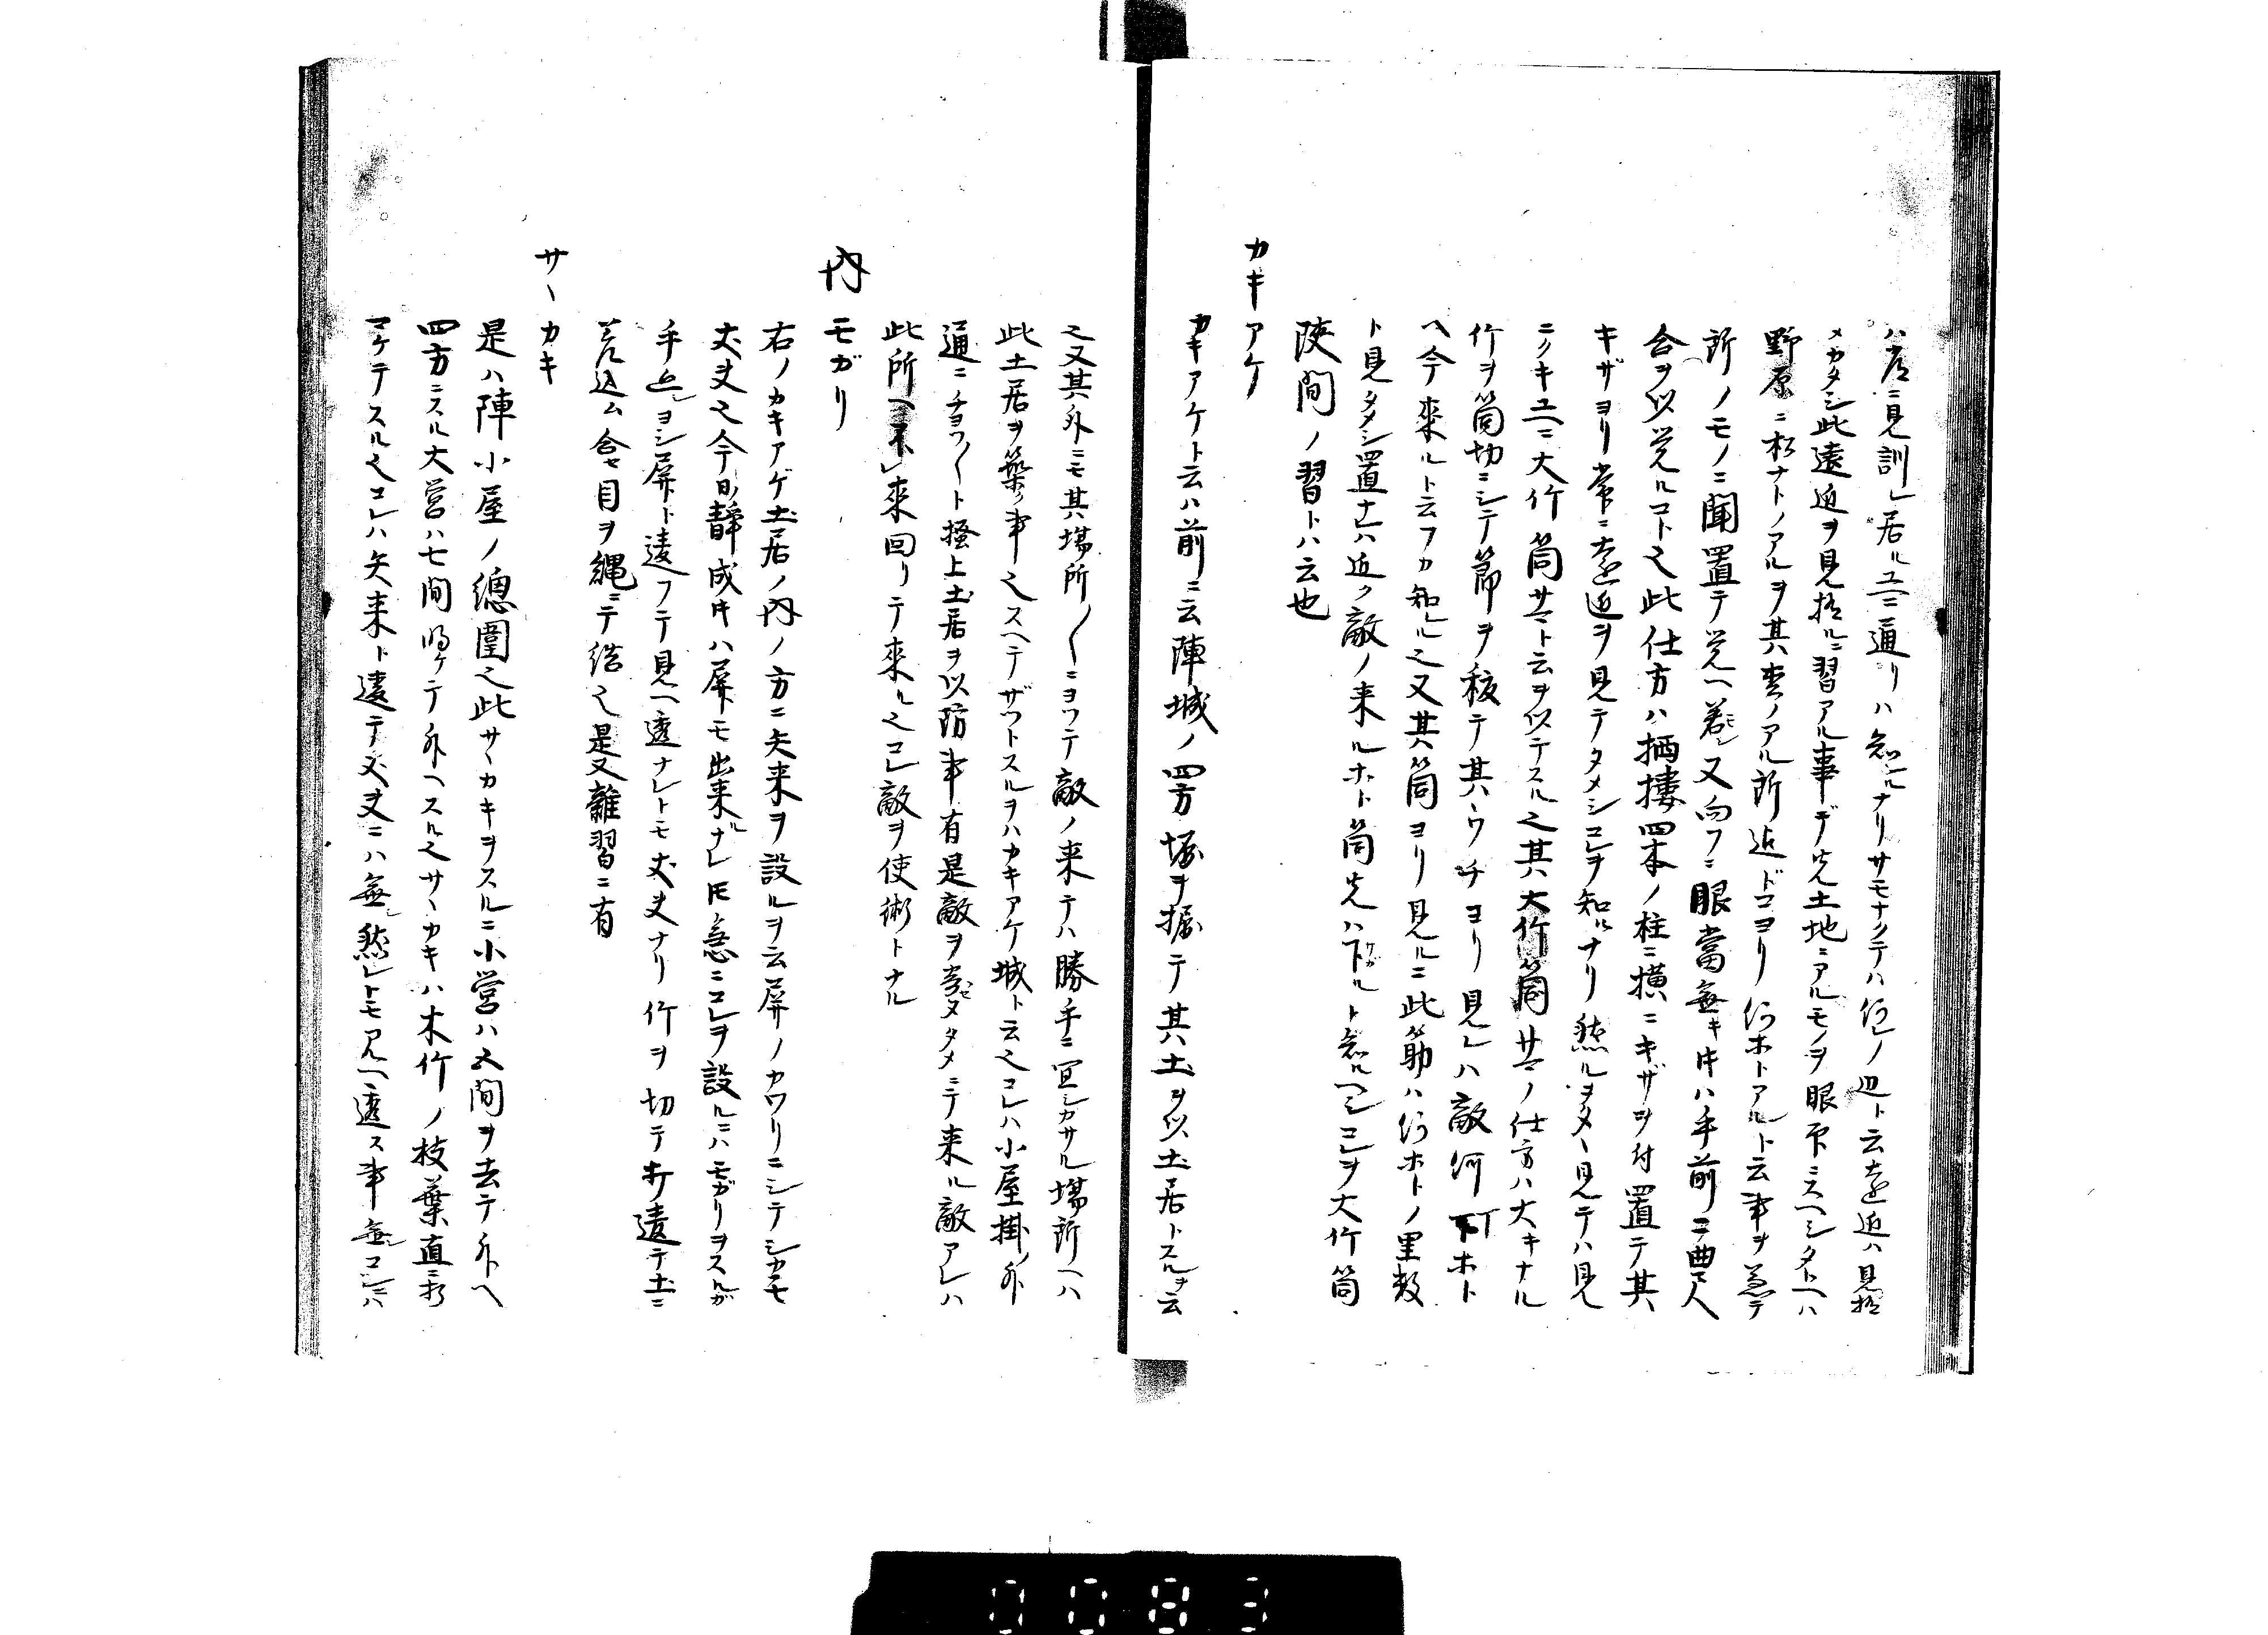 ハ常ニ見訓レ居ル故ニ通リハ知ルナリサモナクテハ何ノ辺ト云遠近ハ見積
メカタシ此遠近ヲ見積ルニ習アル事デ先土地ニアルモノヲ眼下ニスヘシタトヘハ
野原ニ松ナトノアルヲ其松ノアル所迄ドコヨリ何ホトアルト云事ヲ兼テ
所ノモノニ聞置テ覚ヘ若シ又向フニ眼當無キ時ハ手前ニ曲工人
合ヲ以覚ルコト之此仕方ハ栖摟四本ノ柱ニ横ニキザヲ付置テ其
キザヨリ常ニ遠近ヲ見テタメシコレヲ知ルナリ然ルヲタヽ見テハ見
ニクキ故ニ大竹筒サマト云ヲ以テスル之其大竹筒サマノ仕方ハ大キナル
竹ヲ筒切ニシテ節ヲ移テ其ウチヨリ見レハ敵何町ホト
ヘ今来ルト云フカ知ルヽ之又其筒ヨリ見ルニ此筋ハ何ホトノ里数
ト見タメシ置ナレハ近ク敵ノ来ルホト筒先ハ下ルト知ルヘシコレヲ大竹筒
陜間ノ習トハ云也
カキアケ
カキアケト云ハ前ニ云陣城ノ四方堀ヲ掘テ其土ヲ以土居トスルヲ云
之又其外ニモ其場所〱ニヨツテ敵ノ来テハ勝手ニ宜シカサル場所ヘハ
此土居ヲ築ク事之スヘテザツトスルヲハカキアケ城ト云之コレハ小屋掛ノ外
通ニチヨツ〱ト掻上土居ヲ以防事有是敵ヲ寄セヌタメニテ来ル敵アレハ
此所ヘ不来回リテ来ル之コレ敵ヲ使術トナル
内モガリ
右ノカキアゲ土居ノ内ノ方ニ矢来ヲ設ルヲ云屏ノカワリニシテシカモ
丈夫之今日静成時ハ屏モ出来ルナレ𪜈急ニコレヲ設ルニハモガリヲスルガ
手上ヨシ屏ト違フテ見ヘ透ナレトモ丈夫ナリ竹ヲ切テ打違テ土ニ
差込ム合セ目ヲ縄ニテ結之是又離習ニ有
サヽカキ
是ハ陣小屋ノ總圍之此サヽカキヲスルニ小営ハ五間ヲ去テ外ヘ
四方ニスル大営ハ七間明ケテ外ヘスル之サヽカキハ木竹ノ枝葉直ニ折
マケテスル之コレハ矢来ト違テ丈夫ニハ無シ然レトモ見ヘ透ス事無コレハ